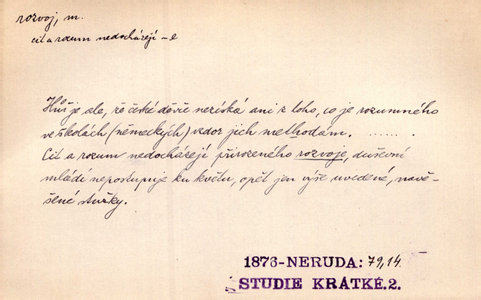 rozvoj, m.
cit a rozum nedocházejí –e
Hůř je ale, že české děvče nezíská ani z toho, co je rozumného
ve školách (německých) vzdor jich methodám. .......
Cit a rozum nedocházejí přirozeného rozvoje, duševní
mládí nepostupuje ku květu, opět jen výše uvedené, navě-
šené stužky.
1876-NERUDA: 79,14
STUDIE KRÁTKÉ.2.